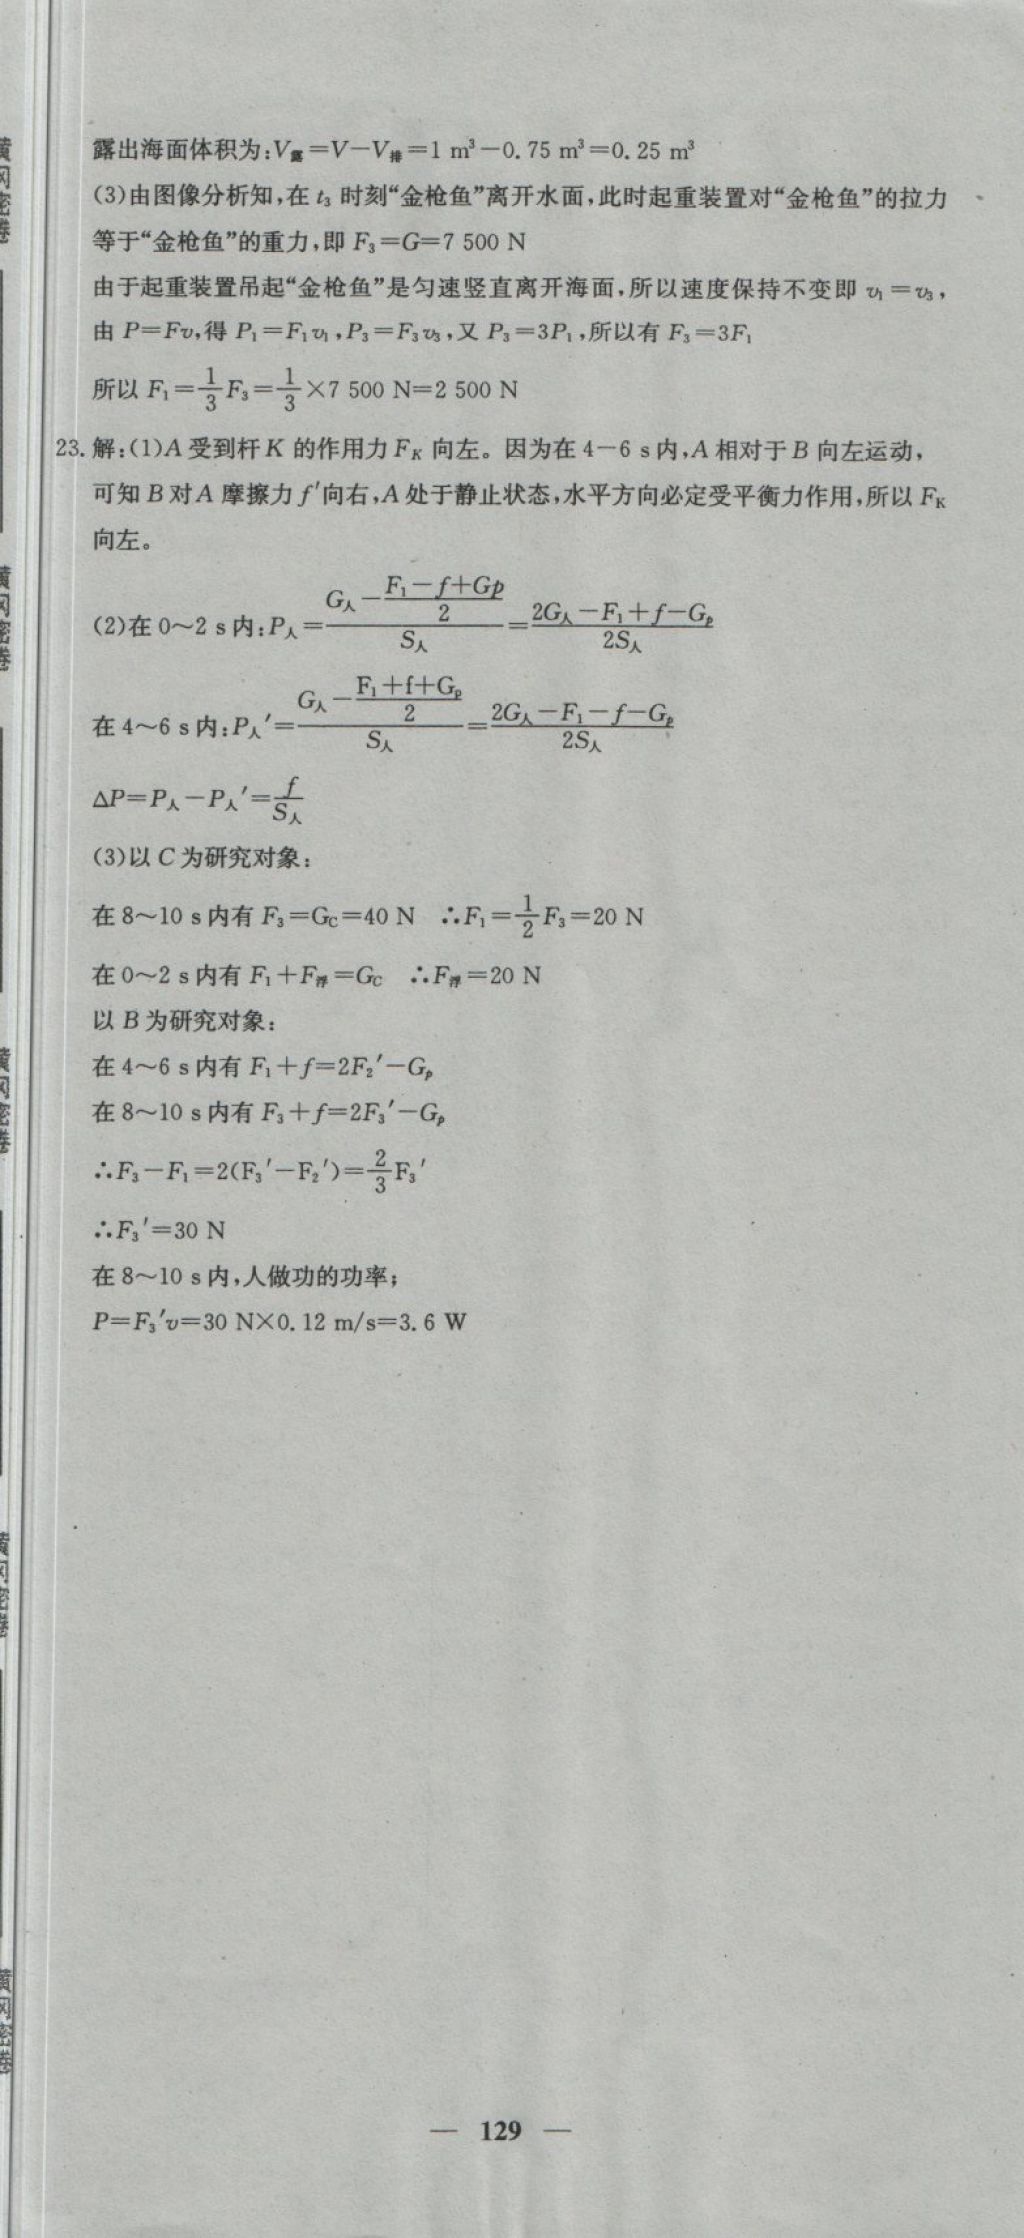 露出海面体积为:V露=V-V排=1 m³-0.75 m³=0.25 m³
(3)由图像分析知,在 t₃ 时刻“金枪鱼”离开水面,此时起重装置对“金枪鱼”的拉力
等于“金枪鱼”的重力,即 F₃=G=7 500 N
由于起重装置吊起“金枪鱼”是匀速竖直离开海面,所以速度保持不变即 v₁=v₃,
由 P=Fv,得 P₁=F₁v₁,P₃=F₃v₃,又 P₃=3P₁,所以有 F₃=3F₁
所以 F₁=1/3 F₃=1/3×7 500 N=2 500 N
23. 解:(1)A 受到杆 K 的作用力 F_K 向左。因为在 4-6 s 内,A 相对于 B 向左运动,
可知 B 对 A 摩擦力 f′向右,A 处于静止状态,水平方向必定受平衡力作用,所以 F_K
向左。
(2)在 0~2 s 内:P人=(G人-(F₁-f+Gp)/2)/S人=(2G人-F₁+f-Gp)/2S人
在 4~6 s 内:P人′=(G人-(F₁+f+Gp)/2)/S人=(2G人-F₁-f-Gp)/2S人
△P=P人-P人′=f/S人
(3)以 C 为研究对象:
在 8~10 s 内有 F₃=G_C=40 N ∴F₁=1/2 F₃=20 N
在 0~2 s 内有 F₁+F浮=G_C ∴F浮=20 N
以 B 为研究对象:
在 4~6 s 内有 F₁+f=2F₂′-Gp
在 8~10 s 内有 F₃+f=2F₃′-Gp
∴F₃-F₁=2(F₃′-F₂′)=2/3 F₃′
∴F₃′=30 N
在 8~10 s 内,人做功的功率;
P=F₃′v=30 N×0.12 m/s=3.6 W
— 129 —
黄冈密卷
黄冈密卷
黄冈密卷
黄冈密卷
黄冈密卷